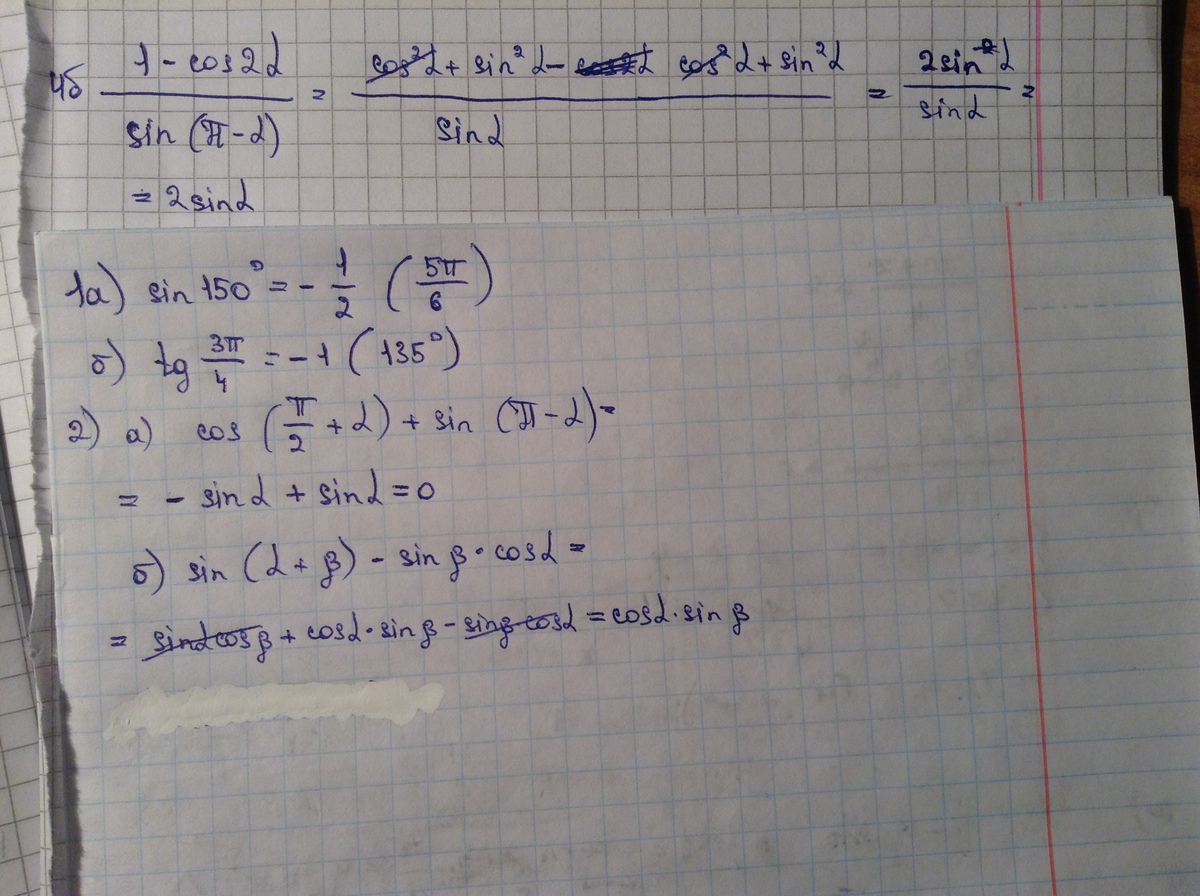 4б (1 - cos2α)/(sin (π - α)) = (cos²α + sin²α - cos²α + sin²α)/(sinα) = (2sin²α)/(sinα) =
= 2sinα
1а) sin 150° = - 1/2 (5π/6)
б) tg 3π/4 = - 1 (135°)
2) а) cos (π/2 + α) + sin (π - α) =
= - sinα + sinα = 0
б) sin (α + β) - sin β · cosα =
= sinαcosβ + cosα · sin β - sinβ cosα = cosα · sin β